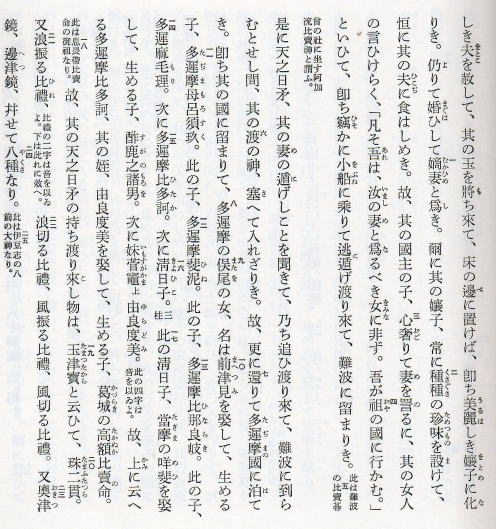 しき夫を赦して、其の玉を將ち來て、床の邊に置けば、卽ち美麗しき孃子に化
りき。仍りて婚ひして嫡妻と爲き。爾に其の孃子、常に種種の珍味を設けて、
恒に其の夫に食はしめき。故、其の國主の子、心奢りて妻を詈るに、其の女人
の言ひけらく、「凡そ吾は、汝の妻と爲るべき女に非ず。吾が祖の國に行かむ。」
といひて、卽ち竊かに小船に乘りて逃遁げ渡り來て、難波に留まりき。此は難波の比賣碁
曾の社に坐す阿加流比賣神と謂ふ。
是に天之日矛、其の妻の遁げしことを聞きて、乃ち追ひ渡り來て、難波に到ら
むとせし間、其の渡の神、塞へて入れざりき。故、更に還りて多遲摩國に泊て
き。卽ち其の國に留まりて、多遲摩の俣尾の女、名は前津見を娶して、生める
子、多遲摩母呂須玖。此の子、多遲摩斐泥。此の子、多遲摩比那良岐。此の子、
多遲麻毛理。次に多遲摩比多訶。次に淸日子。三柱 此の淸日子、當摩の咩斐を娶
して、生める子、酢鹿之諸男。次に妹菅竈上由良度美。此の四字は音を以ゐよ。故、上に云へ
る多遲摩比多訶、其の姪、由良度美を娶して、生める子、葛城の高額比賣命。
此は息長帶比賣命の御祖なり。故、其の天之日矛の持ち渡り來し物は、玉津寶と云ひて、珠二貫。
又浪振る比禮、比禮の二字は音を以ゐよ。下は此れに效へ。浪切る比禮、風振る比禮、風切る比禮。又奧津
鏡、邊津鏡、幷せて八種なり。此は伊豆志の八前の大神なり。